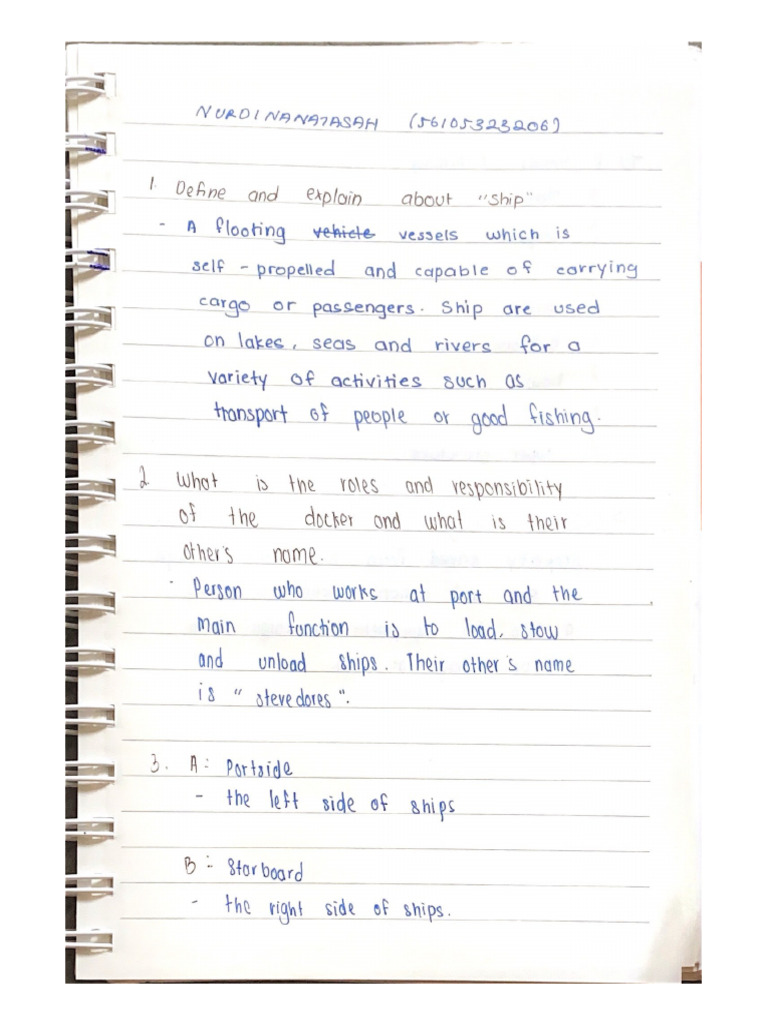 NURDINANATASAH (561053233206)
1. Define and explain about "Ship"
- A floating vehicle vessels which is
self - propelled and capable of carrying
cargo or passengers. Ship are used
on lakes, seas and rivers for a
variety of activities such as
transport of people or good fishing.
2. What is the roles and responsibility
of the docker and what is their
other's name.
- Person who works at port and the
main function is to load, stow
and unload ships. Their other's name
is "stevedores".
3. A: Portside
- the left side of ships
B:- Starboard
- the right side of ships.